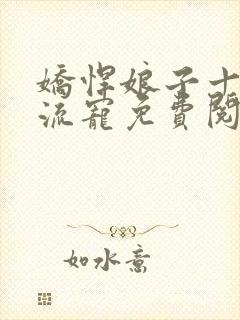 嬌悍娘子十
流寵免費閱
如水意